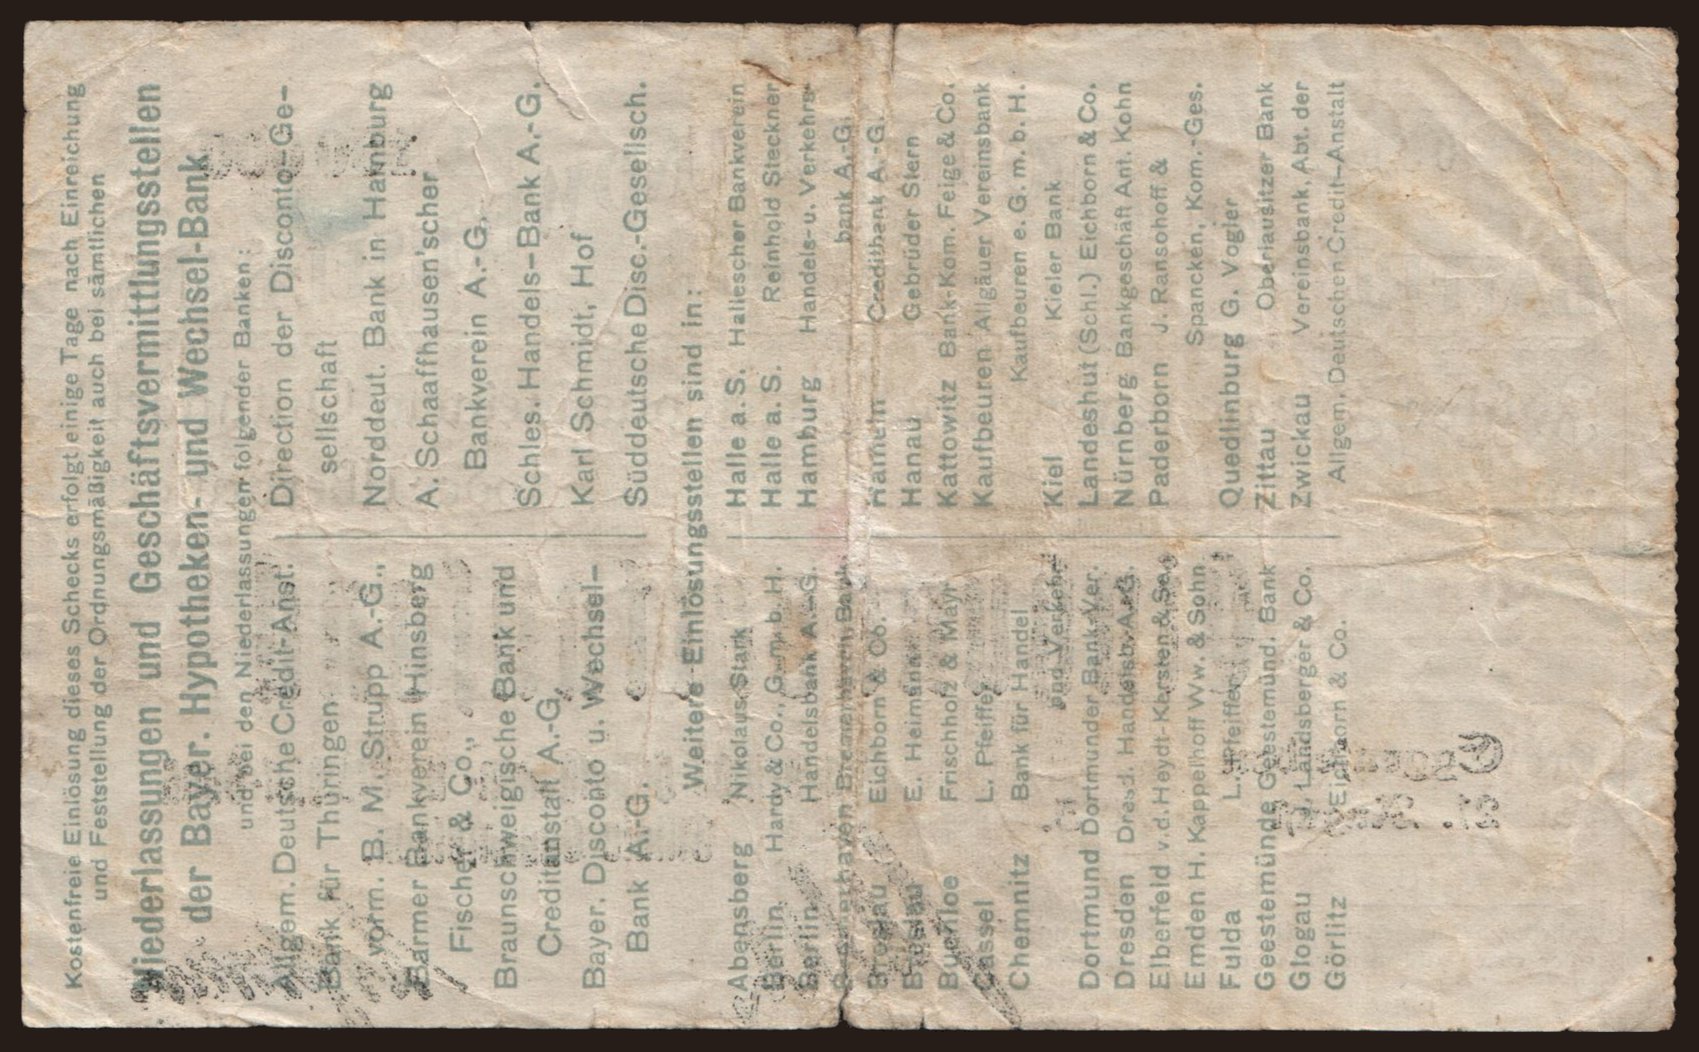 Kostenfreie Einlösung dieses Schecks erfolgt einige Tage nach Einreichung
und Feststellung der Ordnungsmäßigkeit auch bei sämtlichen
Niederlassungen und Geschäftsvermittlungsstellen
der Bayer. Hypotheken- und Wechsel-Bank
und bei den Niederlassungen folgender Banken:
Allgem. Deutsche Credit-Anst.
Bank für Thüringen
vorm. B. M. Strupp A.-G.,
Barmer Bankverein Hinsberg
Fischer & Co.,
Braunschweigische Bank und
Creditanstalt A.-G.
Bayer. Disconto u. Wechsel-
Bank A.-G.
Direction der Disconto-Ge-
sellschaft
Norddeut. Bank in Hamburg
A. Schaaffhausen'scher
Bankverein A.-G.
Schles. Handels-Bank A.-G.
Karl Schmidt, Hof
Süddeutsche Disc.-Gesellsch.
Weitere Einlösungsstellen sind in:
Abensberg Nikolaus Stark
Berlin Hardy & Co., G. m. b. H.
Berlin Handelsbank A.-G.
Bremerhaven Bremerhaven. Bank
Breslau Eichborn & Co.
Breslau E. Heimann
Buchloe Frischholz & Mayr
Cassel L. Pfeiffer
Chemnitz Bank für Handel
und Verkehr
Dortmund Dortmunder Bank-Ver.
Dresden Dresd. Handelsb. A.-G.
Elberfeld v. d. Heydt-Kersten & Sö.
Emden H. Kappelhoff Ww. & Sohn
Fulda L. Pfeiffer
Geestemünde Geestemünd. Bank
Glogau H. Landsberger & Co.
Görlitz Eichborn & Co.
Halle a. S. Hallescher Bankverein
Halle a. S. Reinhold Steckner
Hamburg Handels- u. Verkehrs-
bank A.-G.
Hameln Creditbank A.-G.
Hanau Gebrüder Stern
Kattowitz Bank-Kom. Feige & Co.
Kaufbeuren Allgäuer Vereinsbank
Kaufbeuren e. G. m. b. H.
Kiel Kieler Bank
Landeshut (Schl.) Eichborn & Co.
Nürnberg Bankgeschäft Ant. Kohn
Paderborn J. Ransohoff &
Spancken, Kom.-Ges.
Quedlinburg G. Vogler
Zittau Oberlausitzer Bank
Zwickau Vereinsbank, Abt. der
Allgem. Deutschen Credit-Anstalt